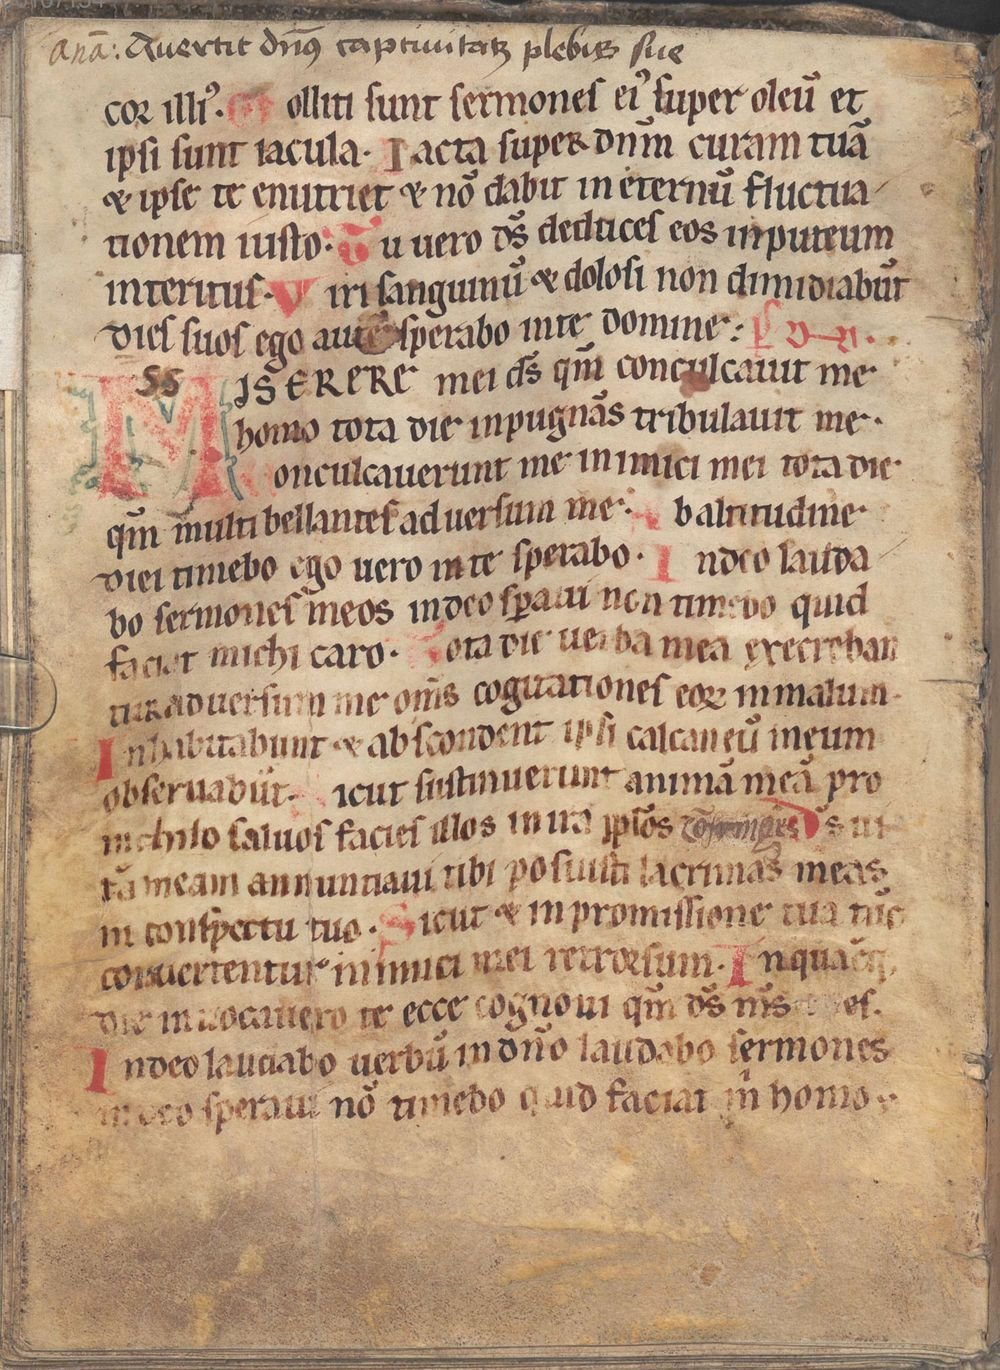 anã: Avertit dñs captiuitatẽ plebis sue
cor illiꝰ. Molliti sunt sermones eiꝰ super oleũ et
ipsi sunt iacula. Iacta super dñm curam tuã
& ipse te enutriet & nõ dabit in eternũ fluctua
tionem iusto. Tu uero dṡ deduces eos in puteum
interitus. Viri sanguinũ & dolosi non dimidiabũt
dies suos ego autẽ sperabo in te domine: p̃s
55
MISERERE mei ds̃ qm̃ conculcauit me
homo tota die inpugnãs tribulauit me.
Conculcauerunt me inimici mei tota die
qm̃ multi bellantes aduersum me. Ab altitudine
diei timebo ego uero in te sperabo. In deo lauda
bo sermones meos in deo sꝑaui non timebo quid
faciat michi caro. Tota die uerba mea execreban
tur aduersum me om̃s cogitationes eoꝝ in malum.
Inhabitabunt & abscondent ipsi calcaneũ meum
obseruabũt. Sicut sustinuerunt animã meã pro
nichilo saluos facies illos in ira pp̃los cõfringes Ds̃ ui
tã meam annuntiaui tibi posuisti lacrimas meas
in conspectu tuo. Sicut & in promissione tua tũc
conuertentur inimici mei retrorsum. In quacũq,
die inuocauero te ecce cognoui qm̃ ds̃ ms̃ es.
In deo laudabo uerbũ in dñо laudabo sermones
in deo speraui nõ timebo quid faciat m̃ homo.